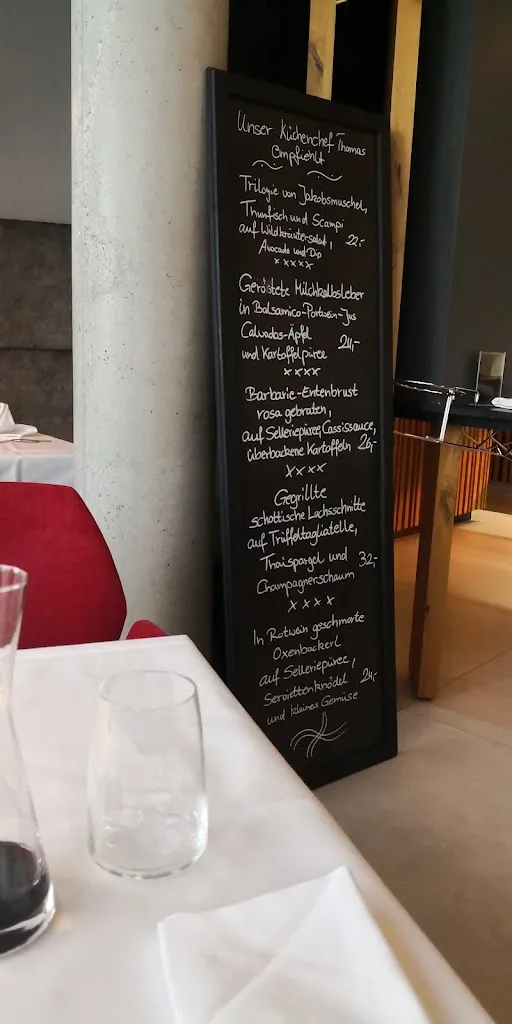 Unser Küchenchef Thomas
empfiehlt
Trilogie von Jakobsmuschel,
Thunfisch und Scampi
auf Wildkräutersalat, 22,-
Avocado und Dip
xxxxx
Geröstete Milchkalbsleber
in Balsamico-Portwein-Jus
Calvados-Äpfel
und Kartoffelpüree 24,-
xxxx
Barbarie-Entenbrust
rosa gebraten,
auf Selleriepüree, Cassissauce,
überbackene Kartoffeln 26,-
xxxx
Gegrillte
schottische Lachsschnitte
auf Trüffeltagliatelle,
Thaispargel und 32,-
Champagnerschaum
xxxx
In Rotwein geschmorte
Oxenbackerl
auf Selleriepüree,
Serviettenknödel 24,-
und kleines Gemüse